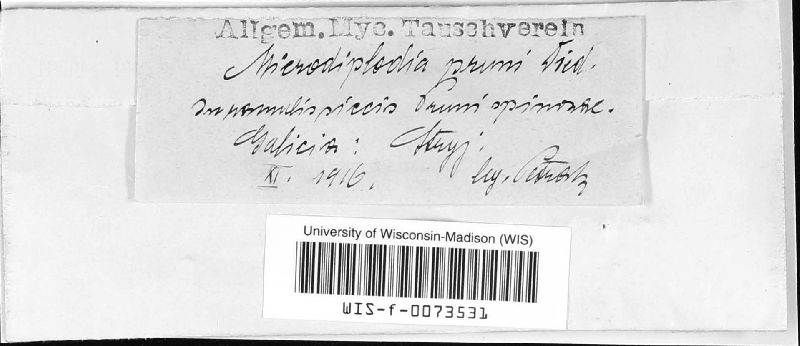 Allgem. Myc. Tauschverein
Microdiplodia pruni Died.
In ramulis siccis Pruni spinosae.
Galicia: Stryj.
XI. 1916. leg. Petrak
University of Wisconsin-Madison (WIS)
WIS-f-0073531